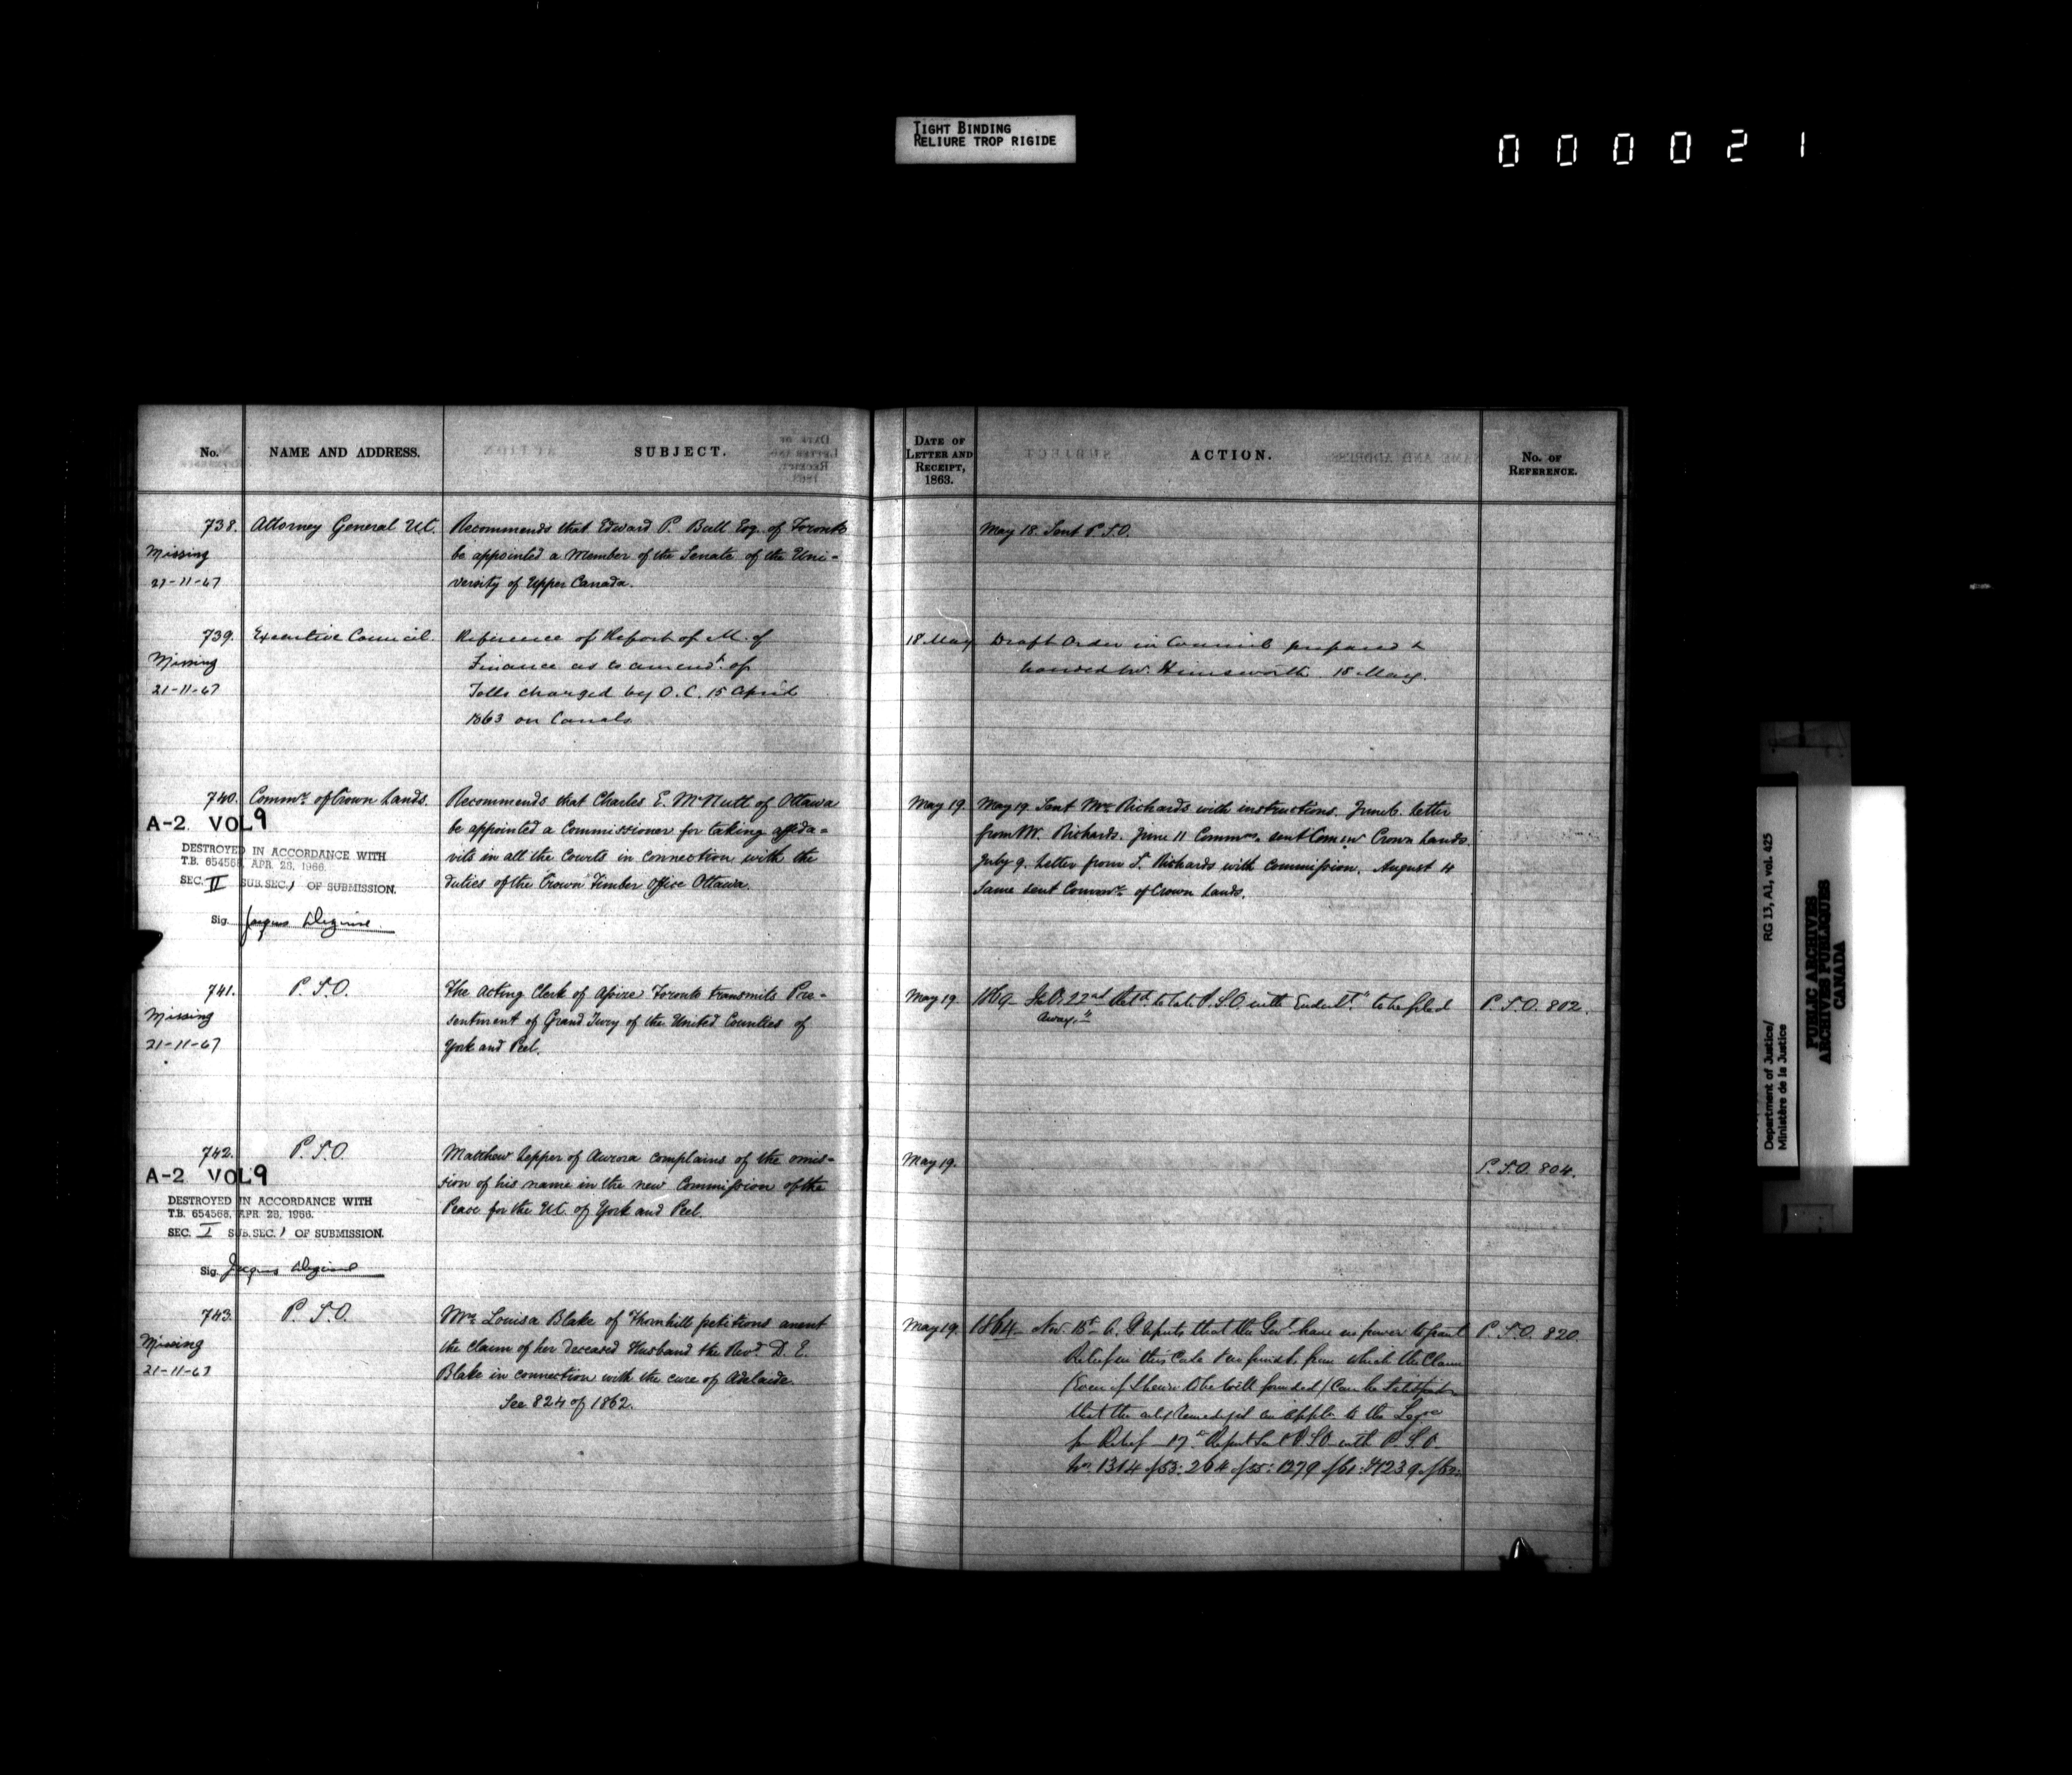 TIGHT BINDING
RELIURE TROP RIGIDE
000021
No.
NAME AND ADDRESS.
SUBJECT.
DATE OF
LETTER AND
RECEIPT,
1863.
ACTION.
No. OF
REFERENCE.
738. Attorney General U.C. Recommends that Edward P. Bull Esq. of Toronto
Missing be appointed a Member of the Senate of the Uni-
21-11-67 versity of Upper Canada.
May 18. Sent P.S.O.
739. Executive Council. Reference of Report of M. of
Missing Finance as to amendt. of
21-11-67 Tolls charged by O.C. 15 April
1863 on Canals
18 May Draft Order in Council prepared &
handed W. Himsworth. 18 May.
740. Commr. of Crown Lands. Recommends that Charles E. McNutt of Ottawa
be appointed a Commissioner for taking affida-
vits in all the Courts in connection with the
duties of the Crown Timber Office Ottawa.
A-2 VOL 9
DESTROYED IN ACCORDANCE WITH
T.B. 654568, APR. 28, 1966.
SEC. II SUB. SEC. 1 OF SUBMISSION.
Sig. Jacques
May 19. May 19. Sent Mr. Richards with instructions. June 6. Letter
from Mr. Richards. June 11 Commn. sent Commr Crown Lands.
July 9. Letter from S. Richards with Commission. August 4
Same sent Commr. of Crown Lands.
741. P.S.O. The Acting Clerk of Assize Toronto transmits Pre-
Missing sentment of Grand Jury of the United Counties of
21-11-67 York and Peel.
May 19. 22nd Retd. to late P.S.O. with Endert. "to be filed P.S.O. 802.
away."
742. P.S.O. Matthew Lepper of Aurora complains of the omis-
sion of his name in the new Commission of the
Peace for the U.C. of York and Peel.
A-2 VOL 9
DESTROYED IN ACCORDANCE WITH
T.B. 654568, APR. 28, 1966.
SEC. I SUB. SEC. 1 OF SUBMISSION.
Sig. Jacques
May 19. P.S.O. 804.
743. P.S.O. Mrs. Louisa Blake of Thornhill petitions anent
Missing the claim of her deceased Husband the Revd. D. E.
21-11-67 Blake in connection with the cure of Adelaide.
See 824 of 1862.
May 19. 1864 Nov. 15th A.G. reports that the Govt. have no power to grant P.S.O. 820.
Relief in this Case & no funds from which the Claim
(Even if shewn to be well founded) can be satisfied
that the only remedy is an appln. to the Legre
for Relief 17th Report sent P.S.O. with P.S.O.
Nos. 1314 of 53: 264 of 55: 1279 of 61: & 1239 of 62:
Department of Justice/
Ministère de la Justice
RG 13, A1, vol. 425
PUBLIC ARCHIVES
ARCHIVES PUBLIQUES
CANADA